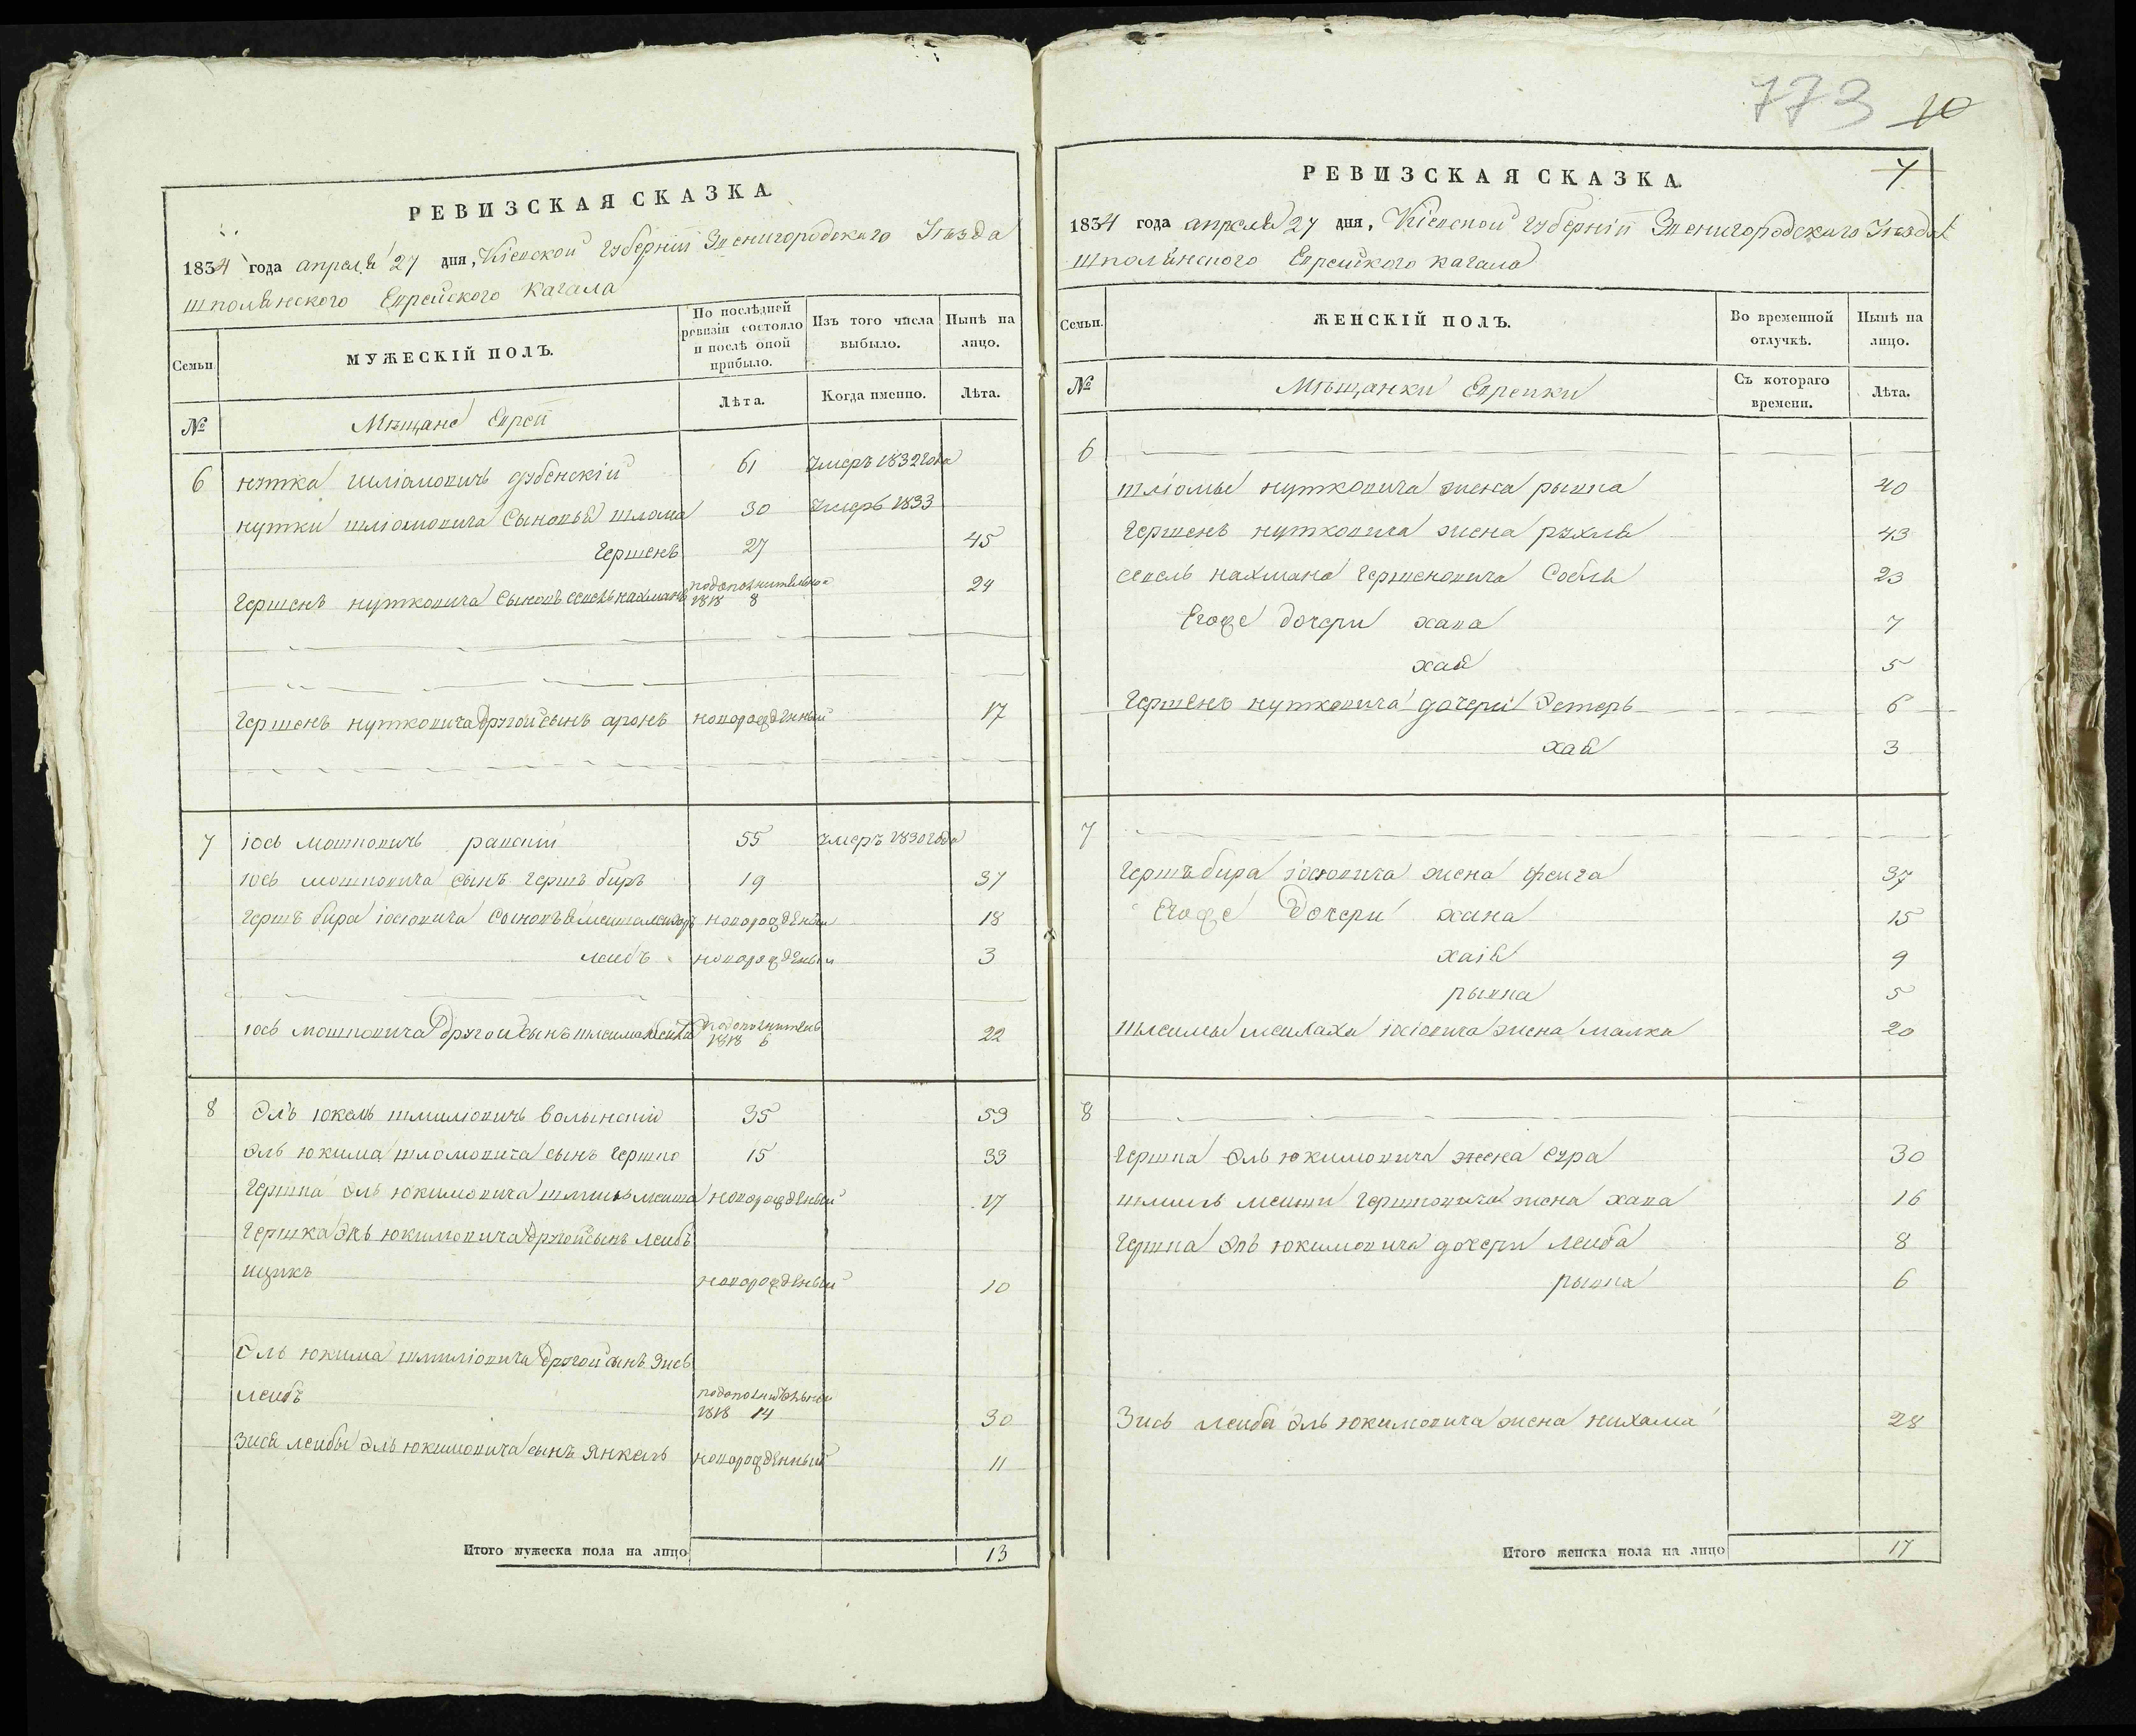 РЕВИЗСКАЯ СКАЗКА.
1834 года апреля 27 дня, Кіевской губерніи Звенигородскаго Уѣзда
шполянского Еврейского Кагала
Семьи
МУЖЕСКІЙ ПОЛЪ.
По послѣдней ревизіи состояло и послѣ оной прибыло.
Изъ того числа выбыло.
Нынѣ на лицо.
№
Мѣщане Евреи
Лѣта.
Когда именно.
Лѣта.
6 нутка шліомовичъ дубенскій 61 умеръ 1832 года
нутки шліомовича сыновья шлома 30 умеръ 1833
гершенъ 27 45
гершенъ нутковича сыновъ севель нахманъ подополнительной 1818 8 24
гершенъ нутковича другой сынъ аронъ новорожденный 17
7 іось мошковичъ равскій 55 умеръ 1830 года
іось мошковича сынъ гершъ биръ 19 37
гершъ бира іосіовича сыновья новорожденный 18
леибъ новорожденный 3
іось мошковича другой сынъ подополнитель 1818 6 22
8 Эль юкель шмиліовичъ волынскій 35 53
эль юкима шломовича сынъ гершко 15 33
гершка эль юкимовича шмиль меиша новорожденный 17
гершка эль юкимовича другой сынъ леибъ
ицикъ новорожденный 10
Эль юкима шмиліовича другой сынъ зись
леибъ подополнительной 1818 14 30
Зися леибы эль юкимовича сынъ янкель новорожденный 11
Итого мужеска пола на лицо 13
773 10
7
РЕВИЗСКАЯ СКАЗКА.
1834 года апреля 27 дня, Кіевской губерніи Звенигородскаго Уѣзда
шполянского Еврейкого кагала
Семьи.
ЖЕНСКІЙ ПОЛЪ.
Во временной отлучкѣ.
Нынѣ на лицо.
№
Мѣщанки Еврейки
Съ котораго времени.
Лѣта.
6
шліомы нутковича жена рывка 40
гершенъ нутковича жена рухля 43
севель нахмана гершеновича Собля 23
Егоже дочери хава 7
хая 5
гершенъ нутковича дочери Эстеръ 6
хая 3
7
гершъ бира іосіовича жена феига 37
Егоже дочери хана 15
хаія 9
рывка 5
шлеимы меилаха іосіовича жена малка 20
8
гершка эль юкимовича жена сура 30
шмиль меиши гершковича жена хава 16
гершка эль юкимовича дочери леиба 8
рывка 6
Зись леиба эль юкимовича жена нихама 28
Итого женска пола на лицо 17